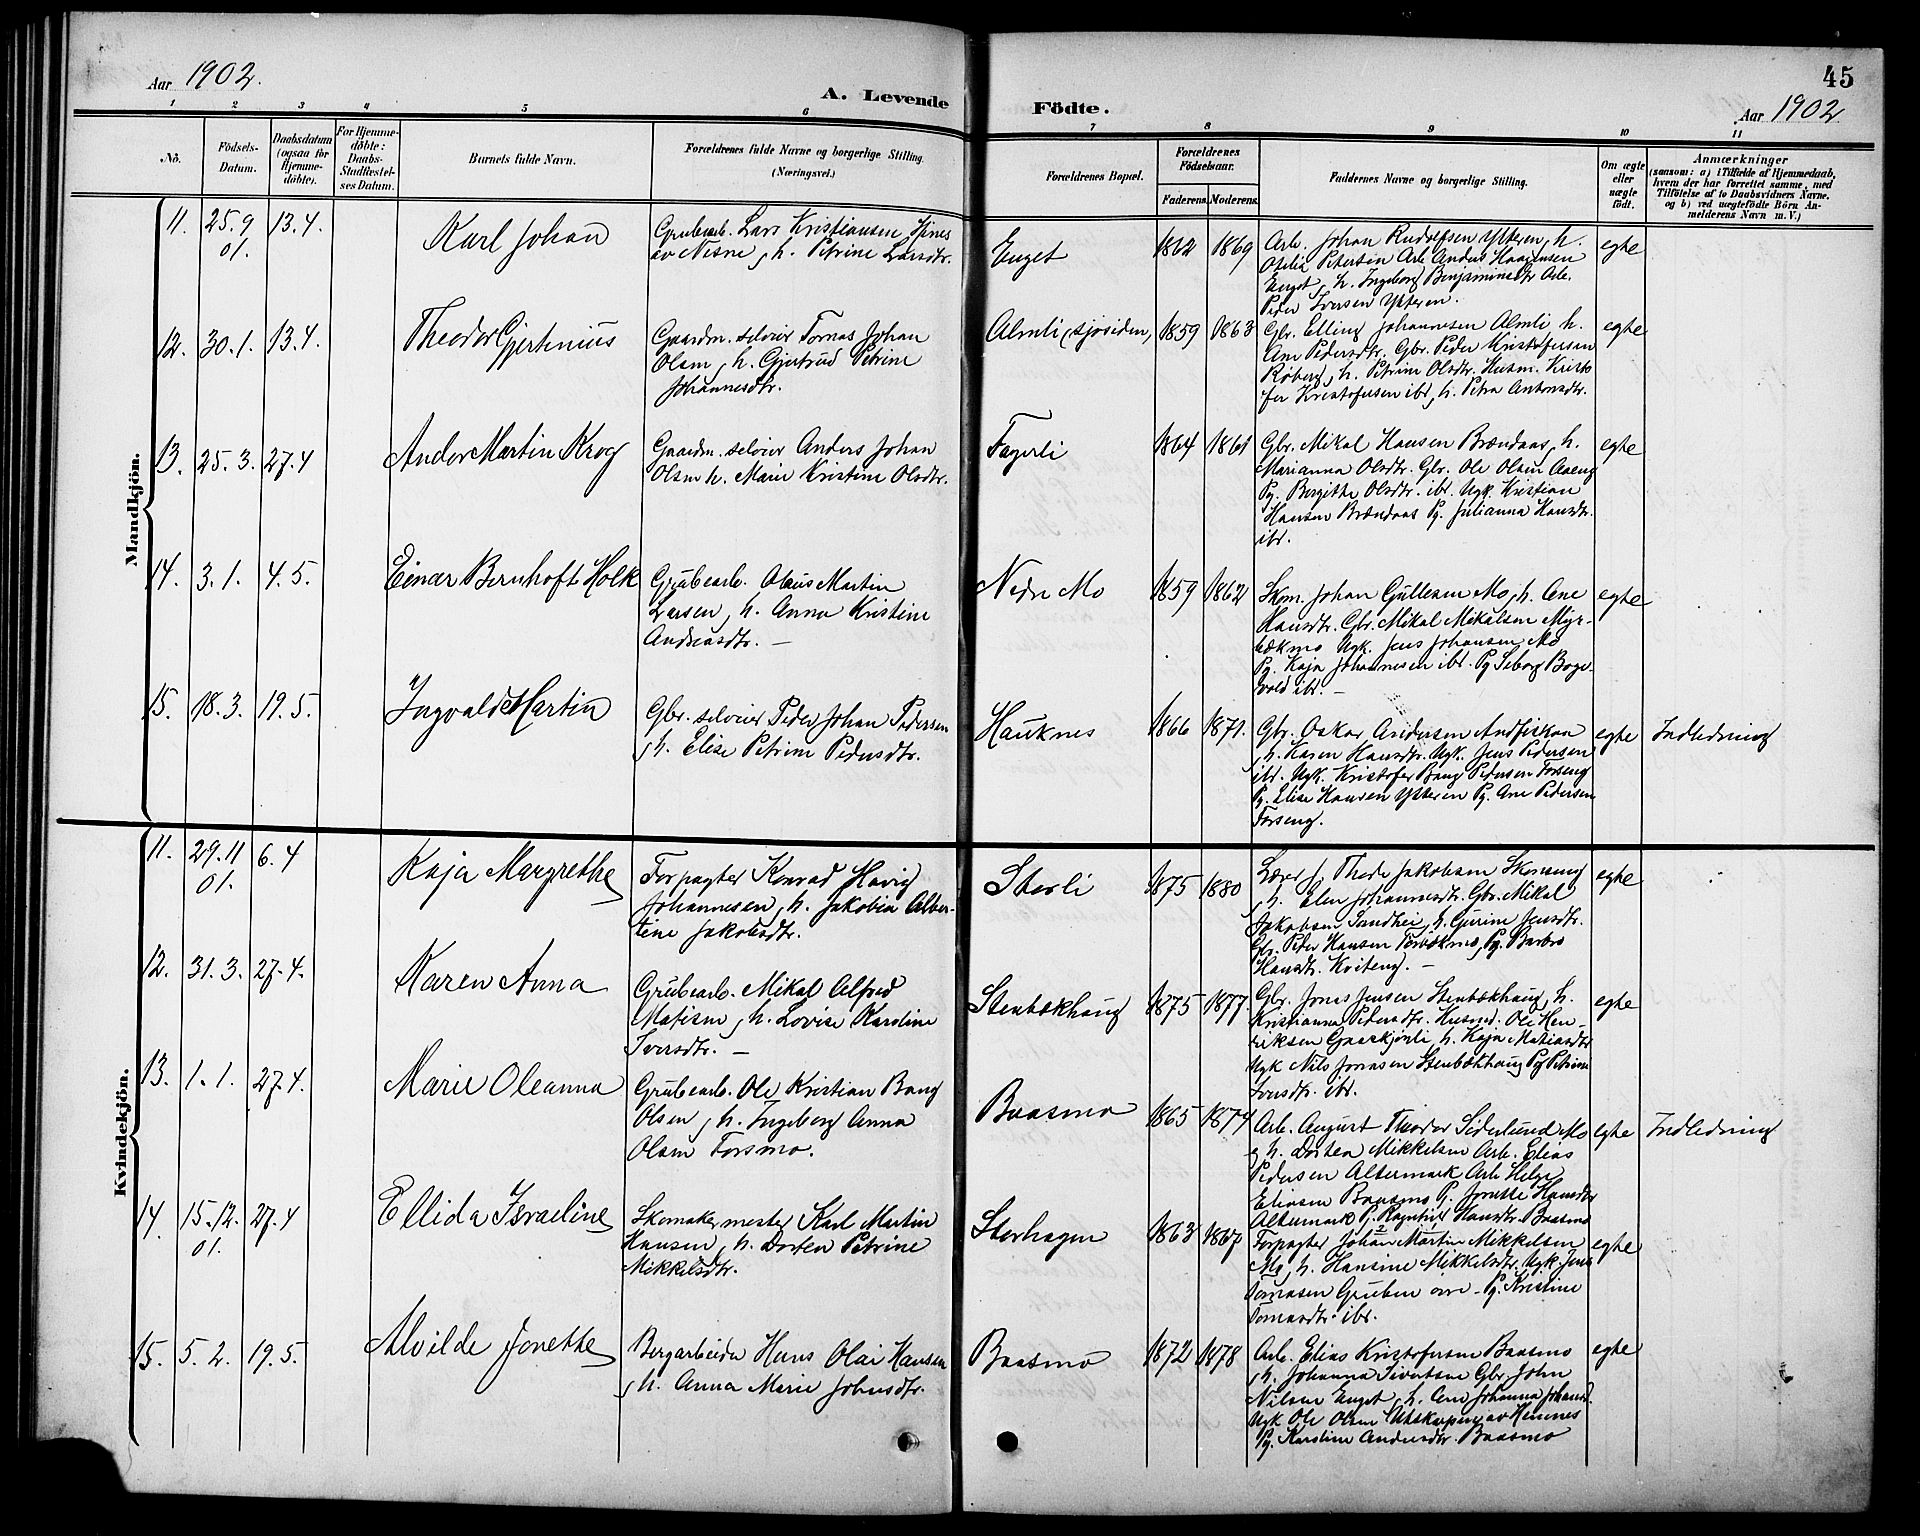 45
Aar 1902.
A. Levende
Födte.
Aar 1902
1 2 3 4 5 6 7 8 9 10 11
No.
Födsels-
Datum.
Daabsdatum
(ogsaa for
Hjemme-
döbte).
For Hjemme-
döbte:
Daabs-
Stadfæstel-
ses Datum.
Barnets fulde Navn.
Forældrenes fulde Navne og borgerlige Stilling.
(Næringsvei.)
Forældrenes Bopæl.
Forældrenes
Födselsaar.
Faderens. Moderens.
Faddernes Navne og borgerlige Stilling.
Om ægte
eller
uægte
födt.
Anmærkninger
(saasom: a) i Tilfælde af Hjemmedaab,
hvem der har forrettet samme, med
Tilföielse af to Daabsvidners Navne,
og b) ved uægtefödte Börn An-
melderens Navn m. V.)
Mandkjön.
11. 25.9 13.4. Karl Johan
01.
Grubearb. Lars Kristiansen
av Nesne, h. Petrine Larsdtr.
Enget 1862 1869
Arb. Johan Rudolfsen Ytteren, h.
Otelia Petersen Arb. Anders Haagensen
Enget, h. Ingeborg Benjaminsdtr Arb.
Peder Iversen Ytteren.
egte
12. 30.1. 13.4. Theodor Gjertinius
Gaardm. selveier Tomas Johan
Olsen, h. Gjertrud Petrine
Johannesdtr.
Almli (sjösiden) 1859 1863
Gbr. Elling Johannesen Almli h.
Ane Pedersdtr. Gbr. Peder Kristofersen
Röberg, h. Petrine Olsdtr. Husm. Kristo
fer Kristofersen ibr, h. Petra Antonsdtr.
egte
13. 25.3. 27.4 Andor Martin Krog
Gaardm. selveier Anders Johan
Olsen h. Marie Kristine Olsdtr.
Fagerli 1864 1861
Gbr. Mikal Hansen Brændaas, h.
Marianna Olsdtr. Gbr. Ole Olsen Aaeng
Pg. Bergithe Olsdtr. ibr. Ugk. Kristian
Hansen Brændaas Pg. Julianna Hansdtr.
ibr.
egte
14. 3.1. 4.5. Einar Bernhoft Holk
Grubearb. Olaus Martin
Larsen, h. Anna Kristine
Andreasdtr. —
Nedre Mo 1859 1862
Skom. Johan Gullesen Mo, h. Ane
Hansdtr. Gbr. Mikal Mikalsen Myr-
bækmo Ugk. Jens Johansen Mo
Pg. Kaja Johannesen ibr. Pg
ibr. —
egte
15. 18.3. 19.5. Ingvald Martin
Gbr. selveier Peder Johan Pedersen
, h. Elise Petrine Pedersdtr.
Hauknes 1866 1871.
Gbr. Oskar Andersen Andfiskaa
, h. Karen Hansdtr. Ugk. Jens Pedersen
ibr. Ugk. Kristofer Bang Pedersen Forseng
Pg. Elise Hansen Ytteren Pg. Ane Pedersen
Forseng.
egte Indledning
Kvindekjön.
11. 29.11 6.4 Kaja Margrethe
01.
Forpagter Konrad Havig
Johannesen, h. Jakobia Alber-
tine Jakobsdtr.
Storli 1875 1880
Jakobsen Skonseng
, h. Elen Johannesdtr. Gbr. Mikal
Jakobsen Sandhei, h. Gurine Jensdtr.
Gbr. Peder Hansen Pg. Barbro
Hansdtr. Kviteng. —
egte
12. 31.3. 27.4. Karen Anna
Grubearb. Mikal Alfred
Matisen, h. Lovise Karoline
Iversdtr. —
Stenbækhaug 1875 1877.
Gbr. Jonas Jensen Stenbækhaug, h.
Kristianna Pedersdtr. Husmd. Ole Hen-
riksen h. Kaja Matiasdtr
Ugk Nils Jonasen Stenbækhaug Pg Petrine
Iversdtr. ibr.
egte
13. 1.1. 27.4. Marie Oleanna
Grubearb. Ole Kristian Bang
Olsen, h. Ingeborg Anna
Olsen Forsmo.
Baasmo 1865 1874
Arb. August Theodor Söderlund Mo
, h. Dorten Mikkelsen Arb. Elias
Pedersen Altermark Arb. Helge
Eliasen Baasmo P. Jonette Hansdtr
Altermark P. Ragnhild Hansdtr. Baasmo
egte Indledning
14. 15.12. 27.4 Ellida Israeline
01.
Skomakermester Karl Martin
Hansen, h. Dorten Petrine
Mikkelsdtr.
Storhagen 1863 1867
Forpagter Johan Martin Mikkelsen
Mo, h. Hansine Mikkelsdtr. Ugk. Jens
Tomasen Gruben Pg. Kristine
Tomasdtr. ibr.
egte
15. 5.2. 19.5. Alvilde Jonethe
Bergarbeider Hans Olai Hansen
, h. Anna Marie Johnsdtr.
Baasmo 1872 1878
Arb. Elias Kristofersen Baasmo
, h. Johanna Sivertsen Gbr. John
Nilsen Enget, h. Ane Johanna Johansd.
Ugk Ole Olsen av Hemnes
Pg. Karoline Andersdtr. Baasmo
egte